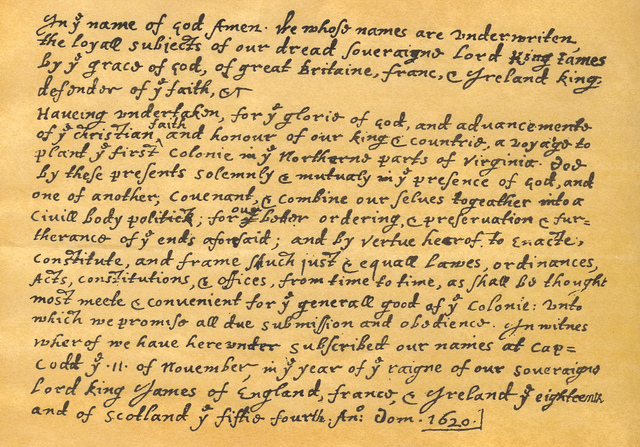 In yͤ name of god Amen. We whose names are vnderwriten,
the loyall subjects of our dread soveraigne Lord King James
by yͤ grace of god, of great Britaine, franc, & Ireland king,
defender of yͤ faith, &c
Haveing vndertaken, for yͤ glorie of god, and advancemente
of yͤ christian ^faith and honour of our king & countrie, a voyage to
plant yͤ first colonie in yͤ Northerne parts of virginia. Doe
by these presents solemnly & mutualy in yͤ presence of god, and
one of another, covenant, & combine our selves togeather into a
Civill body politick; for our better ordering, & preservation & fur=
therance of yͤ ends aforesaid; and by vertue hearof, to Enacte,
Constitute, and frame such just & equall Lawes, ordinances,
Acts, constitutions, & offices, from time to time, as shall be thought
most meete & convenient for yͤ generall good of yͤ Colonie: vnto
which we promise all due submission and obedience. In witnes
wherof we have hereunder subscribed our names at Cap=
Codd yͤ .11. of November, in yͤ year of yͤ raigne of our soveraigne
Lord king James of England, france, & Ireland yͤ eighteenth
and of Scotland yͤ fiftie fourth. Anͦ: Dom. 1620.]